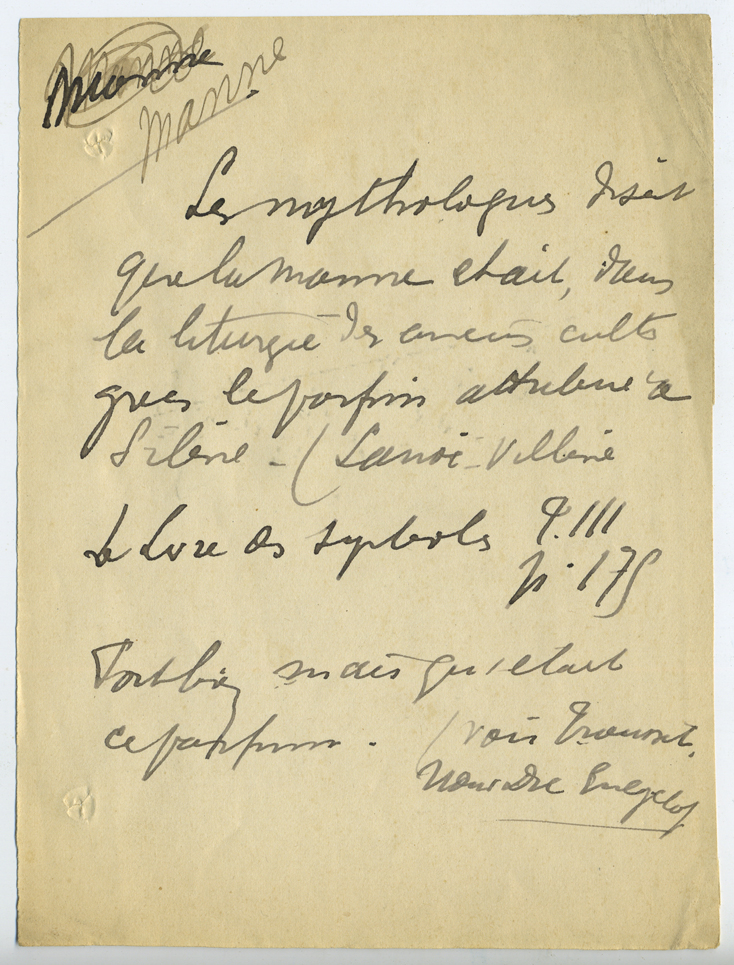 Manne
Manne
Les mythologues disent
que la manne était, dans
la liturgie des anciens cultes
grecs le parfum attribué à
Silène - (Lanoë-Villène
Le Livre des Symboles T. III
p. 175
Fort bien mais qu'etait
ce parfum. (voir